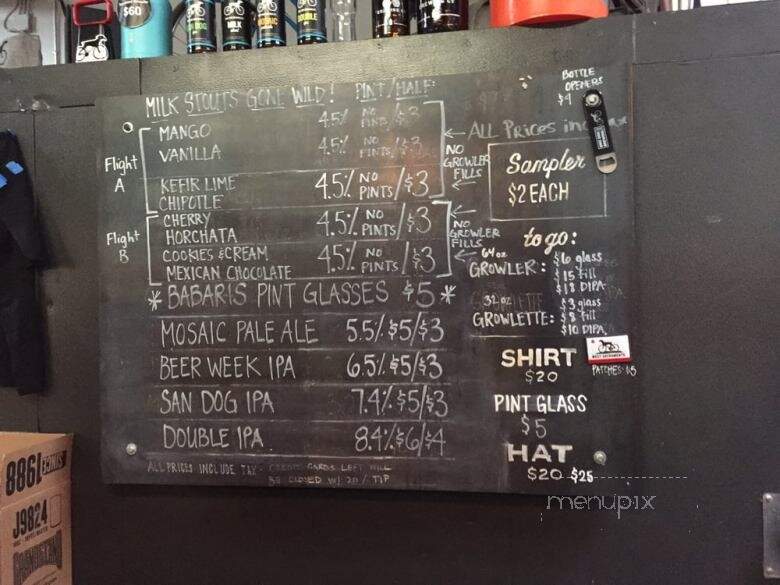 $60
MILK STOUTS GONE WILD! PINT/HALF:
MANGO 4.5% NO PINTS/$3
VANILLA 4.5% NO PINTS/$3
KEFIR LIME
CHIPOTLE 4.5% NO PINTS/$3
CHERRY
HORCHATA 4.5% NO PINTS/$3
COOKIES & CREAM
MEXICAN CHOCOLATE 4.5% NO PINTS/$3
Flight
A
Flight
B
NO
GROWLER
FILLS
NO
GROWLER
FILLS
* BABARIS PINT GLASSES $5 *
MOSAIC PALE ALE 5.5%/$5/$3
BEER WEEK IPA 6.5%/$5/$3
SAN DOG IPA 7.4%/$5/$3
DOUBLE IPA 8.4%/$6/$4
ALL PRICES INCLUDE TAX - CREDIT CARDS LEFT WILL
BE CLOSED W/ 20% TIP
BOTTLE
OPENERS
$4
ALL PRICES
Sampler
$2 EACH
to go:
64 oz
GROWLER: $6 glass
$15 fill
$18 DIPA
32 oz
GROWLETTE: $3 glass
$8 fill
$10 DIPA
SHIRT
$20
PATCHES: $5
PINT GLASS
$5
HAT
$20-$25
menupix
1988
J9824